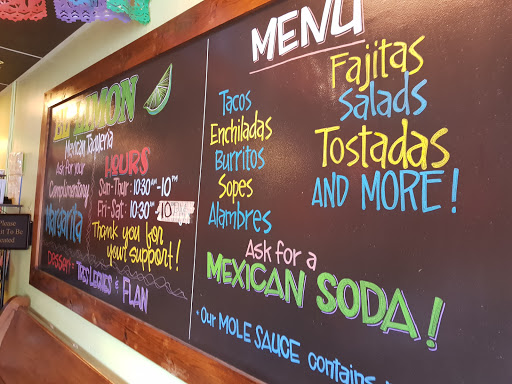 EL LIMON
Mexican Taqueria
Ask for your
Complimentary
Margarita
HOURS
Sun-Thur: 10:30AM-10PM
Fri-Sat: 10:30AM-10
Thank you for
your support!
Dessert: TRES LECHES & FLAN
MENU
Tacos
Enchiladas
Burritos
Sopes
Alambres
Fajitas
Salads
Tostadas
AND MORE!
ASK for a
MEXICAN SODA!
• Our MOLE SAUCE contains
Please
it To Be
eated